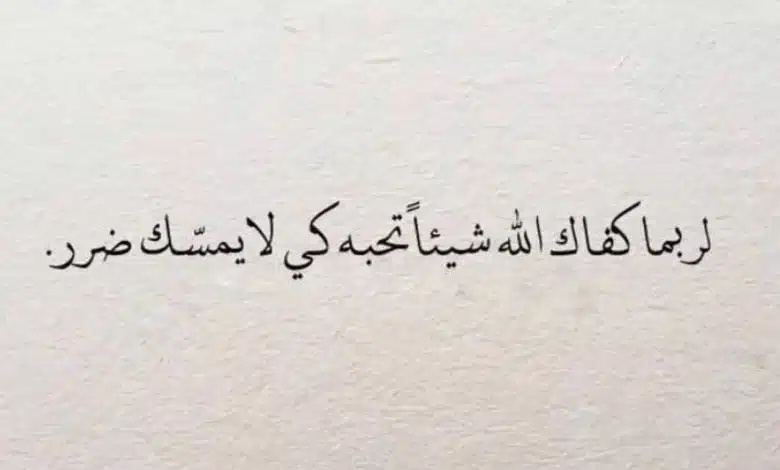 لربما كفاك الله شيئاً تحبه كي لا يمسّك ضرر.